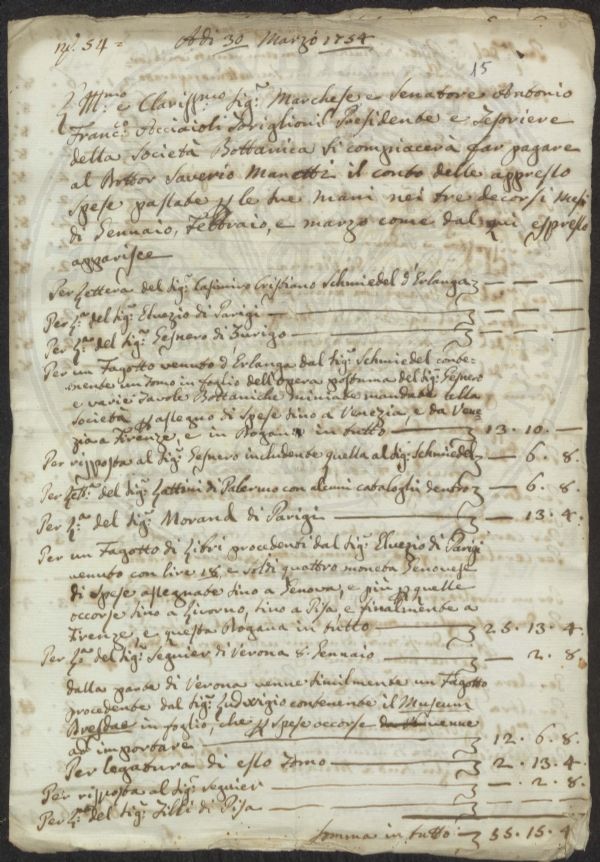 N.º 54 = Adi 30 Marzo 1754
15
Ill.mo e Clariss.mo Sig.r Marchese e Senatore Antonio
Franc.o Acciaioli Toriglioni Presidente e Tesoriere
della Società Bottanica si compiacerà far pagare
al Dottor Saverio Manetti il conto delle appresso
spese passate p le sue mani nei tre decorsi Mesi
di Gennaio, Febbraio, e marzo come dal qui espresso
apparisce
Per Lettera del Sig.r Casimiro Cristiano Schmiedel d'Erlanga — — —
Per L.ra del Sig.r Eluezio di Parigi — — — —
Per L.ra del Sig.r Gesnero di Zurigo — — — —
Per un Fagotto venuto d'Erlanga dal Sig.r Schmiedel conte-
nente un Tomo in foglio dell'Opera postuma del Sig.r Gesnero
e varie Tavole Bottaniche miniate mandate alla
Società p assegno di Spese sino a Venezia, e da Vene
zia a Firenze, e in Dogana in tutto — 13. 10. —
Per risposta al Sig.r Gesnero includente quella al Sig.r Schmiedel — 6. 8.
Per Lett.ra del Sig.r Lattini di Palermo con alcuni cataloghi dentro — 6. 8.
Per L.ra del Sig.r Morand di Parigi — — 13. 4.
Per un Fagotto di Libri procedenti dal Sig.r Eluezio di Parigi
venuto con lire 18, e soldi quattro moneta Genovese
di spese assegnate sino a Genova, e più p quelle
occorse sino a Livorno, sino a Pisa e finalmente a
Firenze, e questa Dogana in tutto — 25. 13. 4.
Per L.ra del Sig.r Seguier di Verona 8. Gennaio — — 2. 8.
dalla parte di Verona venne similmente un Fagotto
procedente dal Sig.r Ludvigio contenente il Museum
in foglio, che p spese occorse venne
ad importare — 12. 6. 8.
Per legatura di esso Tomo — 2. 13. 4.
Per risposta al Sig.r Seguier — — 2. 8.
Per L.ra del Sig.r Tilli di Pisa — — — —
Somma in tutto — 55. 15. 4